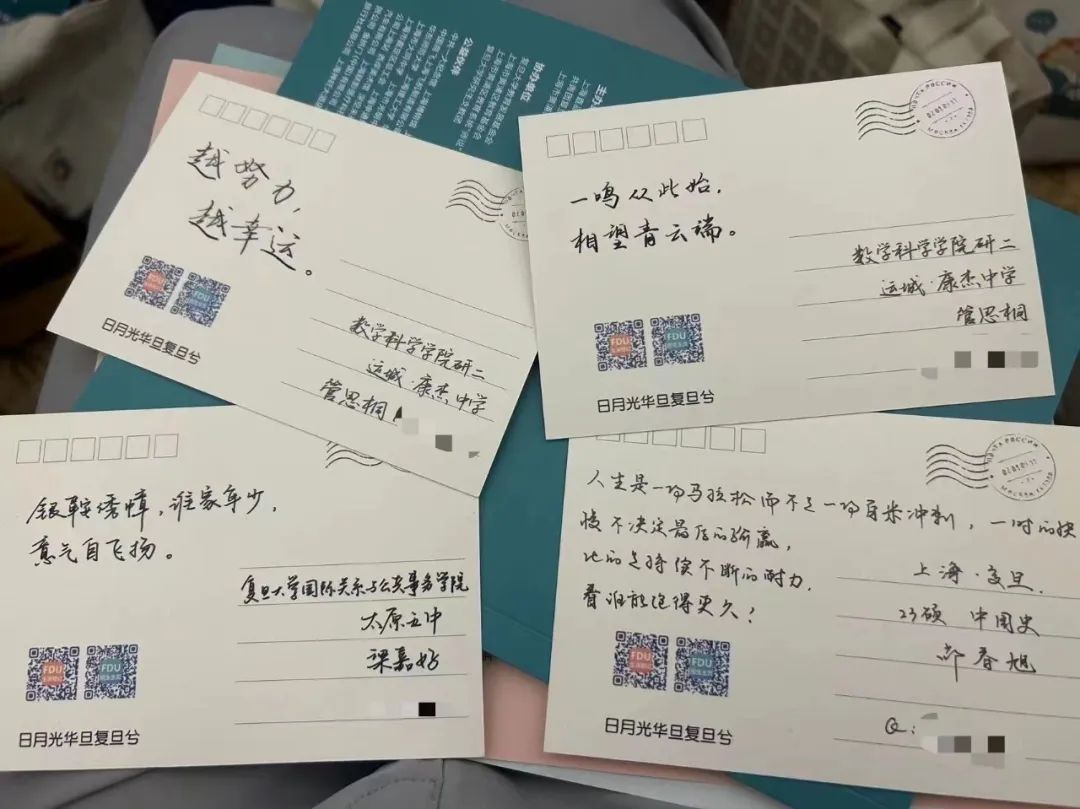 主办
协办单位
公益伙伴
越努力，
越幸运。
FDU
数学科学学院研二
运城·康杰中学
管思桐
日月光华旦复旦兮
ПОЧТА РОССИИ
МОСКВА
一鸣从此始，
相望青云端。
数学科学学院研二
运城·康杰中学
管思桐
FDU
FDU
日月光华旦复旦兮
银鞍绣帏，谁家年少，
意气自飞扬。
复旦大学国际关系与公共事务学院
太原五中
梁嘉好
FDU
FDU
日月光华旦复旦兮
人生是一场马拉松而不是一场百米冲刺，一时的快
慢不决定最后的输赢，
比的是持续不断的耐力，
看谁能跑得更久！
上海·复旦
23硕 中国史
春旭
Q：
FDU
FDU
日月光华旦复旦兮